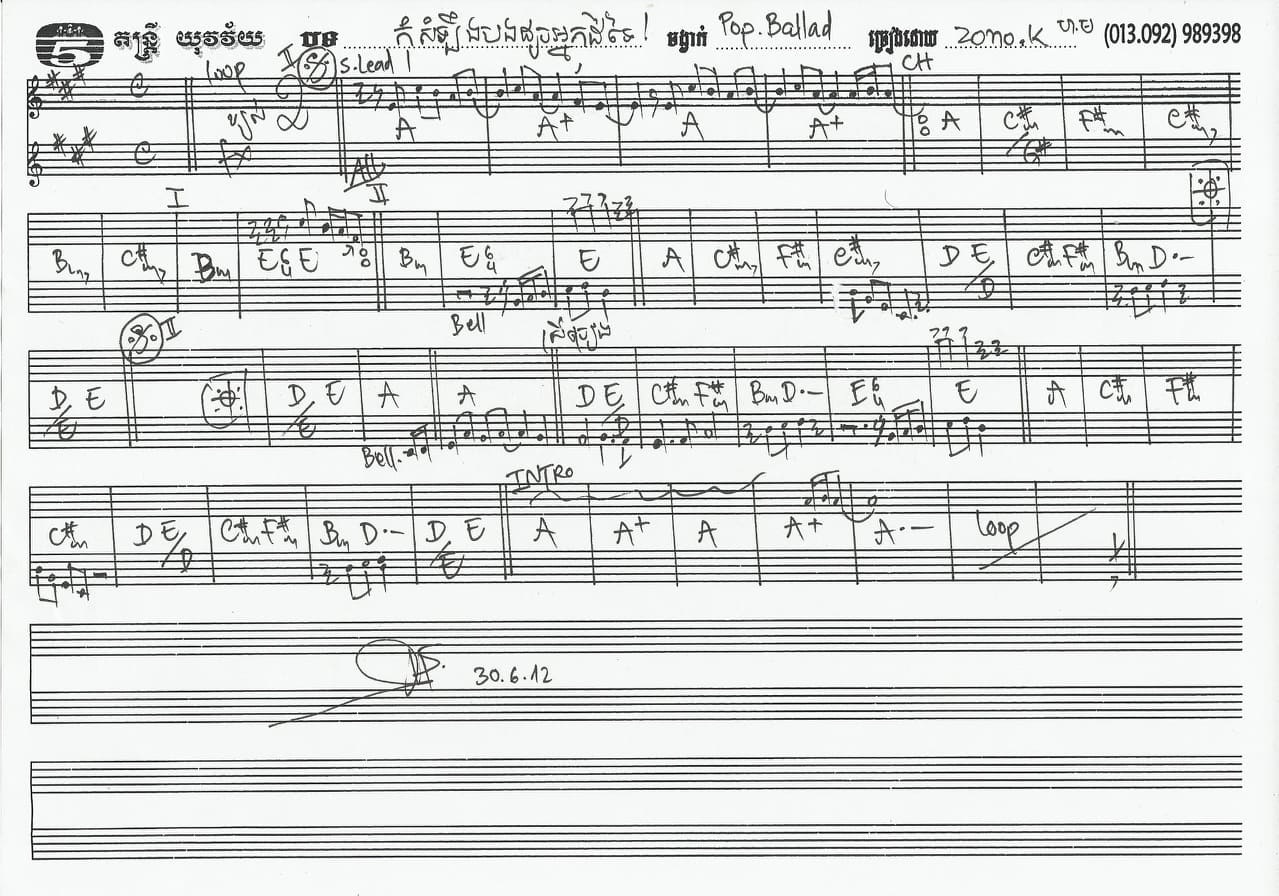 5 តន្ត្រី យុវវ័យ បទ កុំសំឡឹងបងផ្សាអ្នកដទៃ! ចង្វាក់ Pop. Ballad ច្រៀងដោយ zono.K (013.092) 989398
loop II S.Lead 1 CH
A A+ A A+ A C#m/G# F#m C#m7
fx
I II
Bm7 C#m7 Bm E64 E Bm E64 E A C#m7 F#m C#m7 D E/D C#m F#m Bm D.-
Bell
II
D/E E D/E E A A D E/D C#m F#m Bm D.- E64 E A C#m F#m
Bell.
INTRO
C#m D E/D C#m F#m Bm D.- D/E E A A+ A A+ A.- Loop
30.6.12